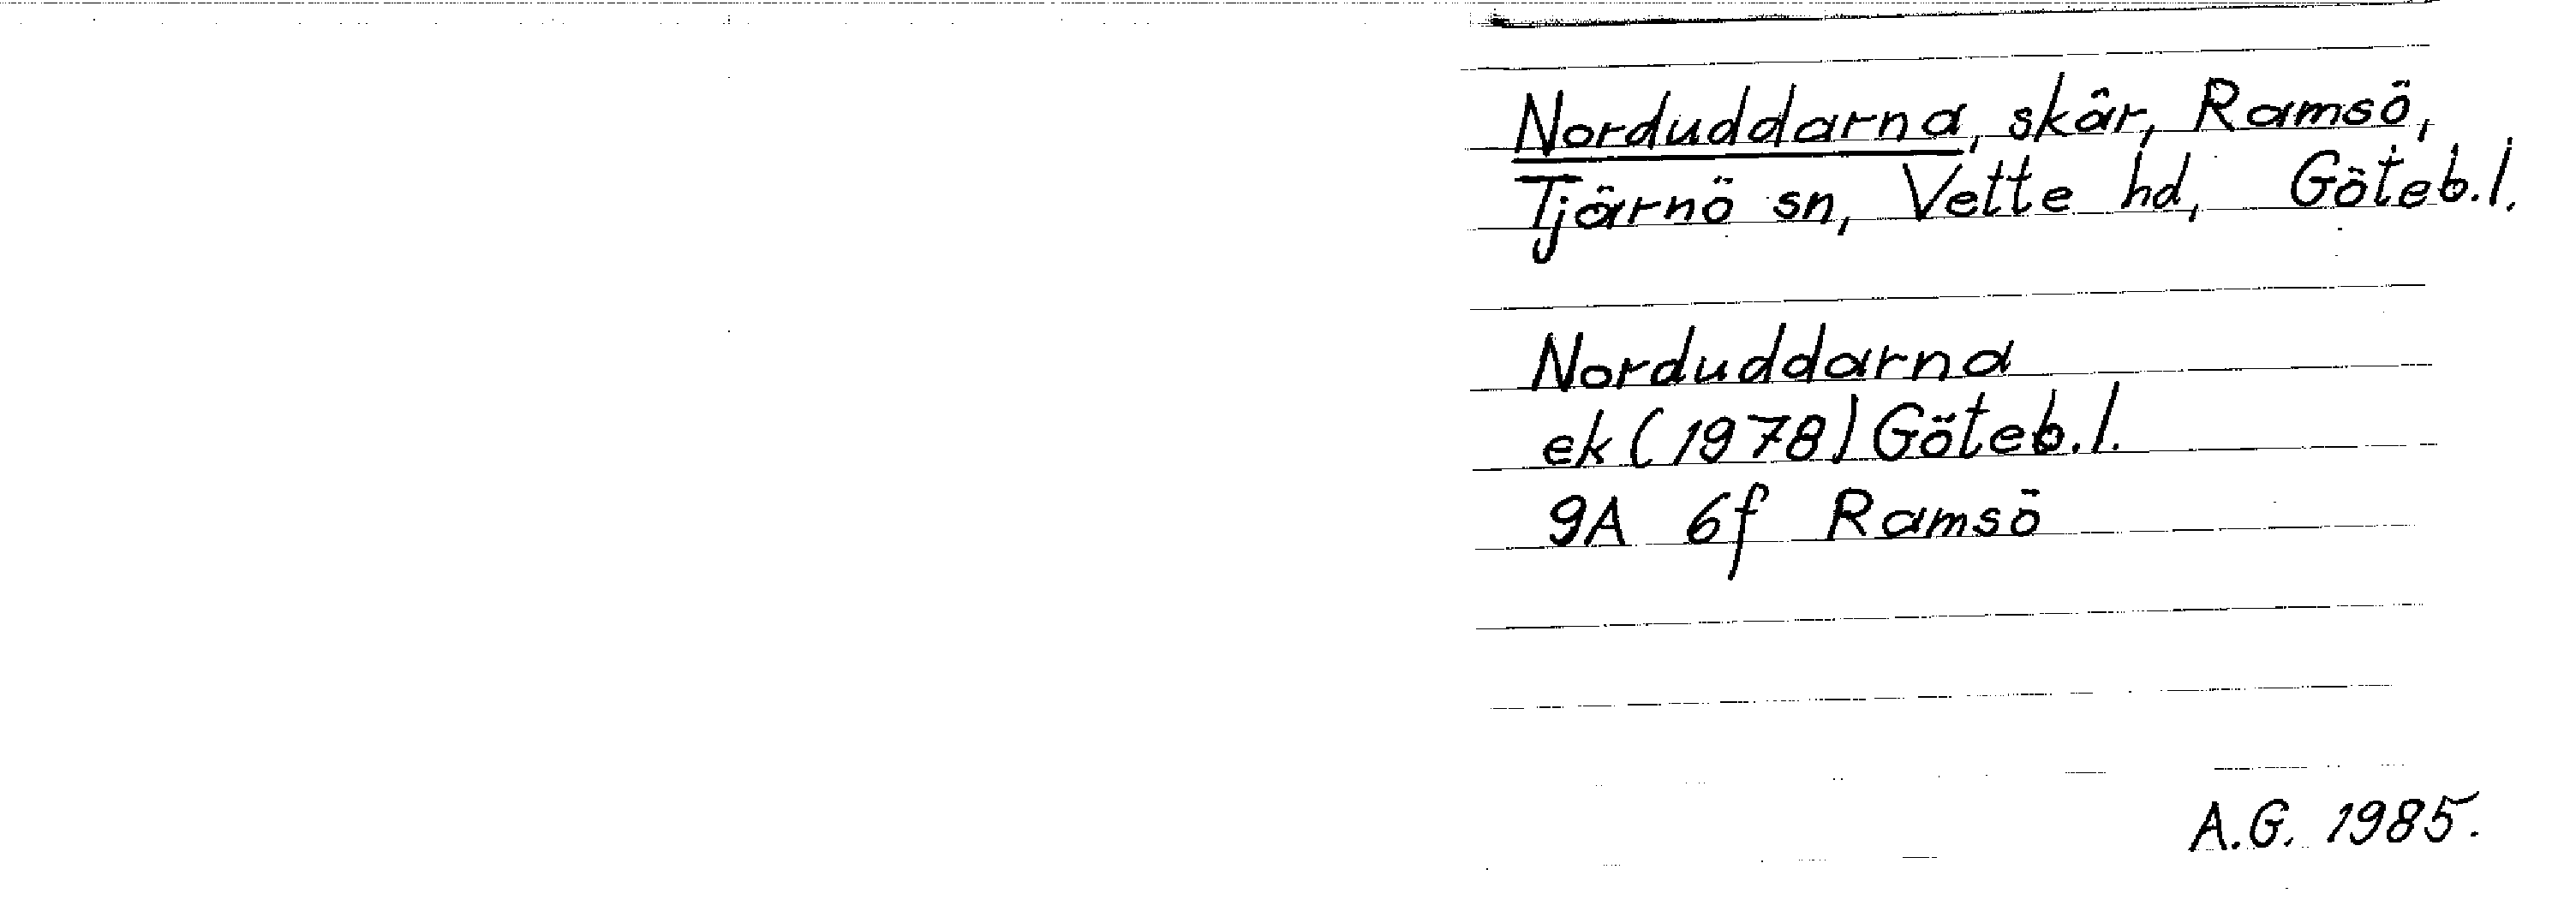 Norduddarna, skär, Ramsö,
Tjärnö sn, Vette hd, Göteb.l.
Norduddarna
ek (1978) Göteb.l.
9A 6f Ramsö
A.G. 1985.